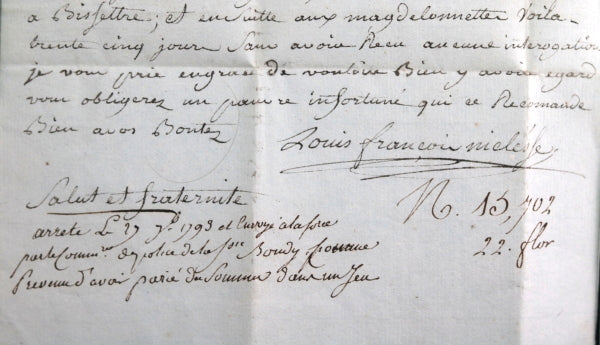 a Bissettre; et ensuitte aux magdelonnettes voila
trente cinq jours sans avoir Recu aucune interogation
je vous prie engrace de vouloire Bien y avoir egard
vous obligerez un pauvre infortuné qui ce Recomande
Bien avos Bontez
Louis françois nielesse
Salut et fraternite
N. 15,702
arrete Le 27 7bre 1793 et Envoyé a la force
22. flor
par le Commre de police de la son Bondy
Prevenu d'avoir parié des Sommes dans un Jeu